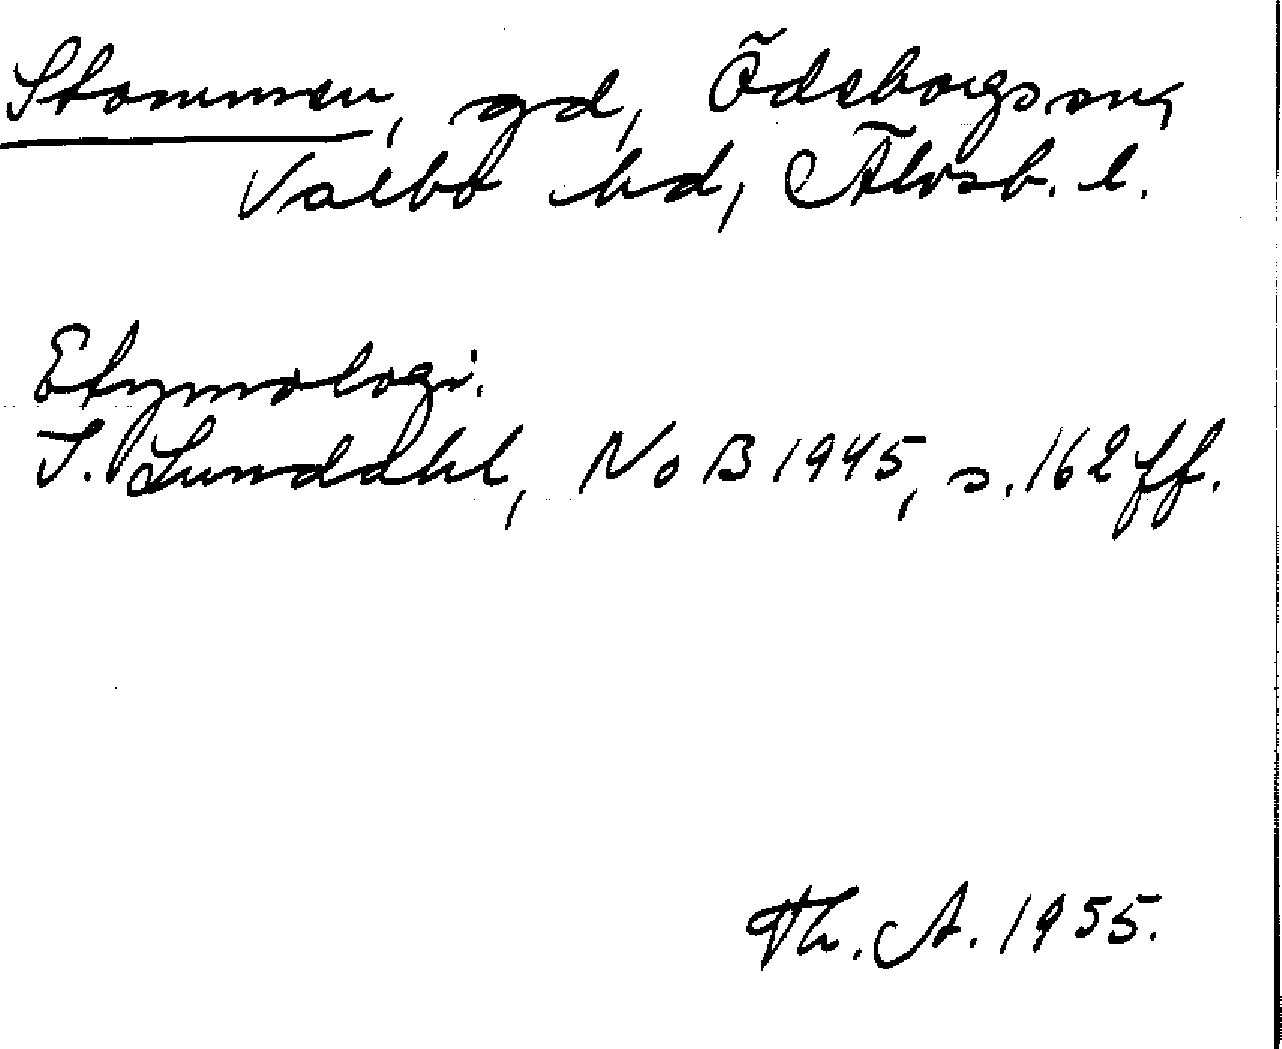 Stommen, gd, Ödeborgs sn,
Valbo hd, Älvsb. l.
Etymologi.
I. Lundahl, NoB 1945, s. 162 ff.
Th. A. 1955.